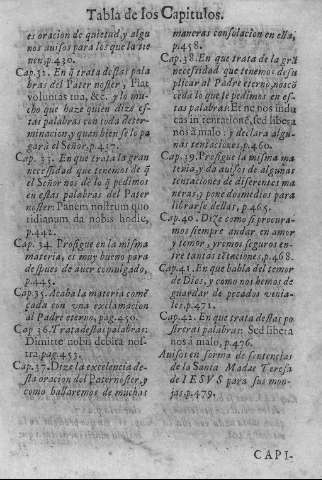 Tabla de los Capitulos.
es oracion de quietud, y algu
nos auisos para los que la tie
nen, p.430.
Cap. 32. En q̃ trata destas pala
bras del Pater noster, Fiat
voluntas tua, &c. y lo mu-
cho que haze quien dize es-
tas palabras con toda deter-
minacion, y quan bien se lo pa
garà el Señor, p.437.
Cap. 33. En que trata la gran
necessidad que tenemos de q̃
el Señor nos de lo q̃ pedimos
en estas palabras del Pater
noster: Panem nostrum quo
tidianum da nobis hodie,
p.442.
Cap. 34. Prosigue en la misma
materia, es muy bueno para
despues de auer comulgado,
p.445.
Cap. 35. Acaba la materia comẽ
çada con vna exclamacion
al Padre eterno, pag. 450.
Cap. 36. Trata destas palabras:
Dimitte nobis debita nos-
tra, pag. 453.
Cap. 37. Dize la excelencia de-
sta oracion del Paternoster, y
como hallaremos de muchas
maneras consolacion en ella,
p.458.
Cap. 38. En que trata de la grã
necessidad que tenemos de su
plicar al Padre eterno, nos cõ
ceda lo que le pedimos en es-
tas palabras: Et ne nos indu
cas in tentationẽ, sed libera
nos à malo: y declara algu-
nas tentaciones, p.460.
Cap. 39. Prosigue la misma ma
teria, y da auisos de algunas
tentaciones de diferentes ma
neras, y pone dos medios para
librarse dellas, p.465.
Cap. 40. Dize como si procura-
mos siempre andar en amor
y temor, yremos seguros en-
tre tantas tẽtaciones, p.468.
Cap. 41. En que habla del temor
de Dios, y como nos hemos de
guardar de pecados venia-
les. p.471.
Cap. 42. En que trata destas po
streras palabras: Sed libera
nos à malo, p.476.
Auisos en forma de sentencias
de la Santa Madre Teresa
de IESVS para sus mon-
jas. p.479.
CAPI-